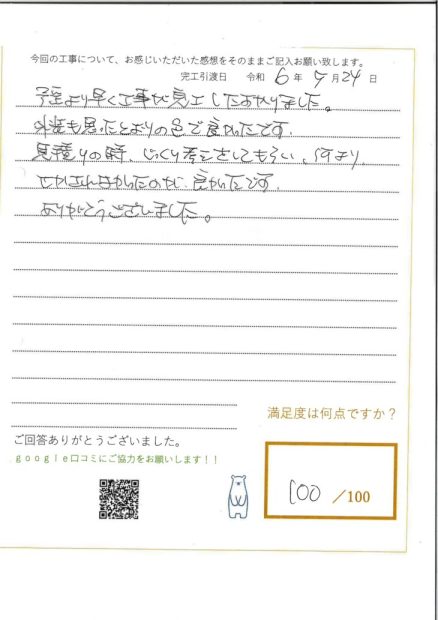 今回の工事について、お感じいただいた感想をそのままご記入お願い致します。
完工引渡日 令和 6 年 5 月 24 日
予定より早く工事が完工したすかりました。
外装も思ったとおりの色で良かったです。
見積りの時、じっくり考えをしてもらい、何より
せかされなかったのが、良かったです。
ありがとうございました。
満足度は何点ですか？
ご回答ありがとうございました。
google口コミにご協力をお願いします！！
100 /100